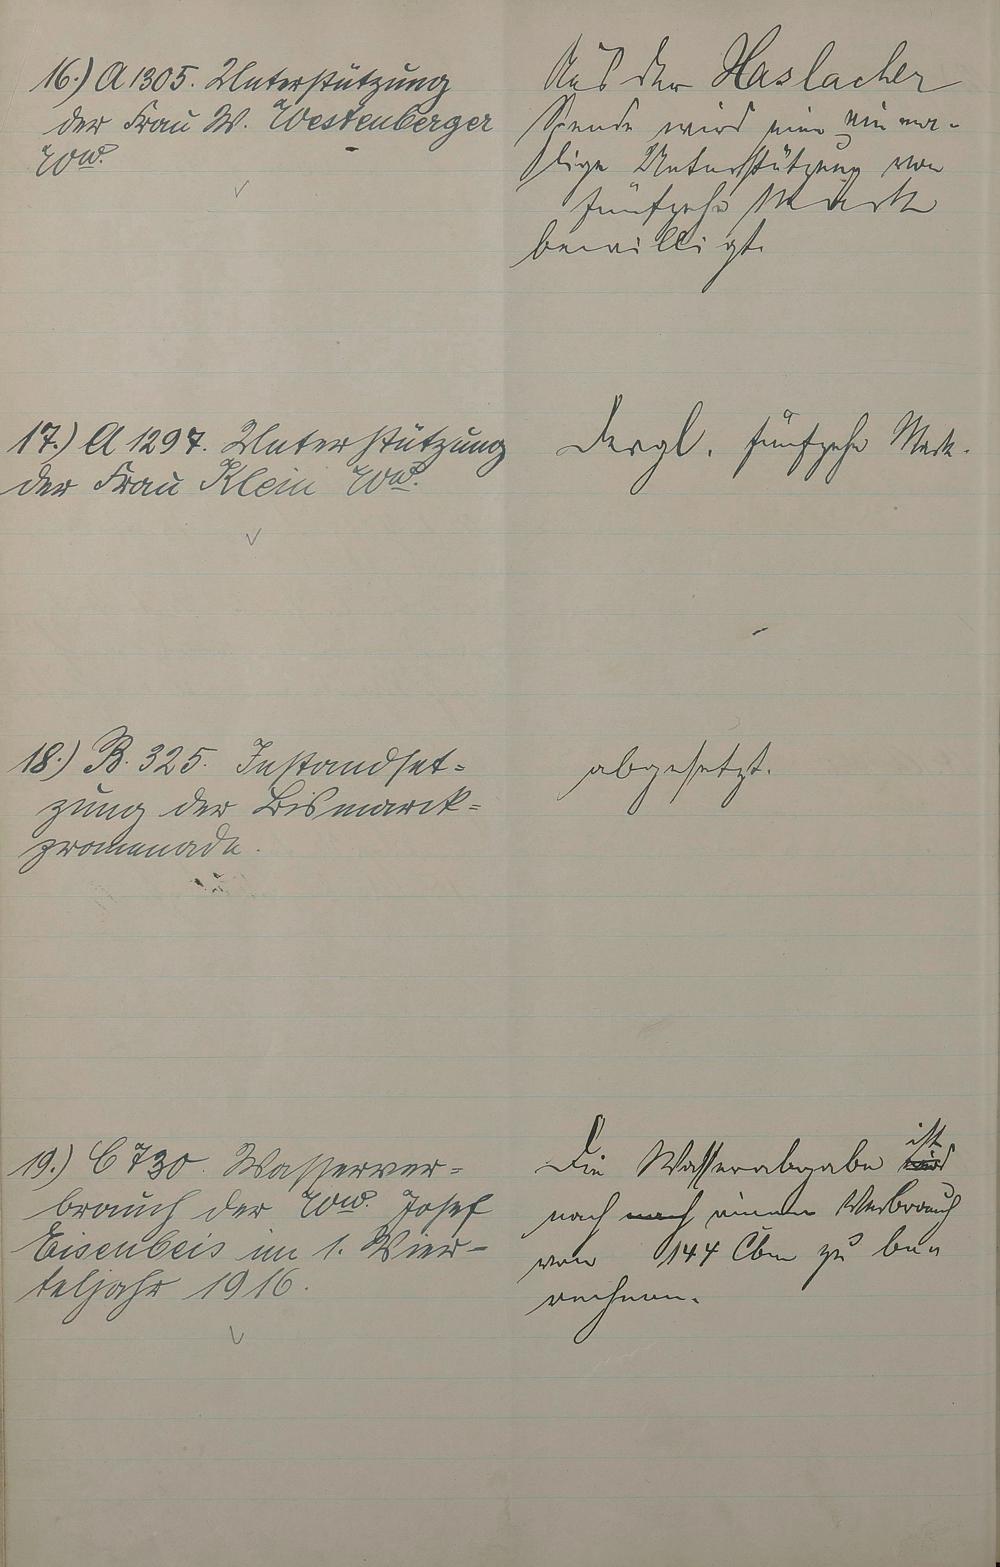 16.) A 1305. Unterstützung
der Frau W. Westenberger
Wwe.
Aus der Haslacher
Spende wird eine einma-
lige Unterstützung von
fünfzehn Mark
bewilligt.
17.) A 1297. Unterstützung
der Frau Klein Wwe.
Dergl. fünfzehn Mark.
18.) B. 325. Instandset-
zung der Bismarck-
promenade.
abgesetzt.
19.) C 730. Wasserver-
brauch der Wwe. Josef
Eisenbeis im 1. Vier-
teljahr 1916.
Die Wasserabgabe ist
nach einem Verbrauch
von 144 Cbm zu be-
rechnen.